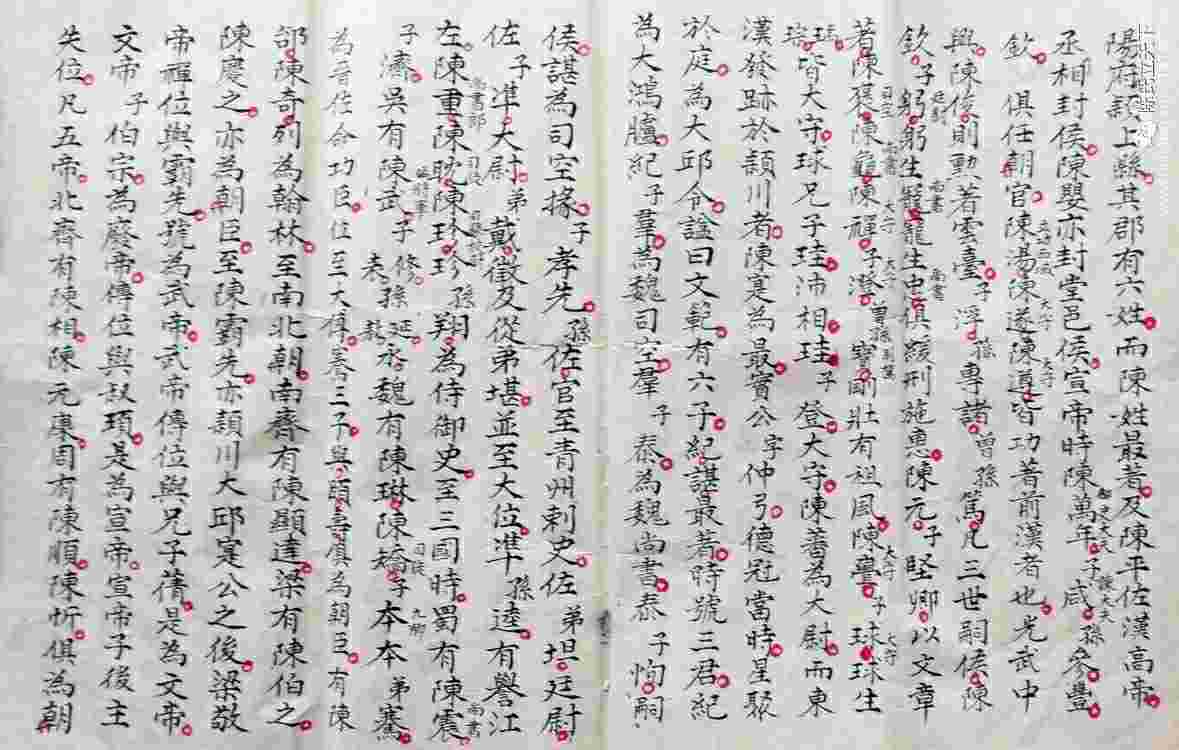 陽府潁上縣其郡有六姓而陳姓最著及陳平佐漢高帝
丞相封侯陳嬰亦封堂邑侯宣帝時陳萬年御史大夫子咸諫大夫孫參豐
欽俱任朝官陳湯陳遂太守陳導太守皆功著前漢者也光武中
興陳俊則勲著雲臺子浮孫專諸曾孫篤凡三世嗣侯陳
欽子躬廷尉躬生寵尚書寵生忠尚書俱緩刑施惠陳元子堅卿以文章
著陳褒司空陳龜尚書陳禪大守子澄大守曾孫寶剛壯有祖風陳亹大守子球大守球生
瑀琮皆大守球兄子珪沛相珪子登大守陳蕃為大尉而東
漢發跡於潁川者陳寔為最實公字仲弓德冠當時星聚
於庭為大邱令諡曰文範有六子紀諶最著時號三君紀
為大鴻臚紀子羣為魏司空羣子泰為魏尚書泰子恂嗣
侯諶為司空掾子孝先孫佐官至青州刺史佐弟坦廷尉
佐子準大尉弟戴徵及從弟堪並至大位準孫逵有譽江
左陳重尚書郎陳眈司徒陳珍珍孫翔為侍御史至三國時蜀有陳震尚書
子濟吳有陳武子修表孫延敖丞魏有陳琳陳矯司徒子本九卿本弟騫
為晉佐命功臣位至大傅騫三子輿頤嵩廣為朝臣有陳
邵陳奇列為翰林至南北朝南齊有陳顯達梁有陳伯之
陳慶之亦為朝臣至陳霸先亦潁川大邱寔公之後梁敬
帝禪位與霸先號為武帝武帝傳位與兄子蒨是為文帝
文帝子伯宗為廢帝傳位與叔頊是為宣帝宣帝子後主
失位凡五帝北齊有陳相陳元康周有陳順陳忻俱為朝